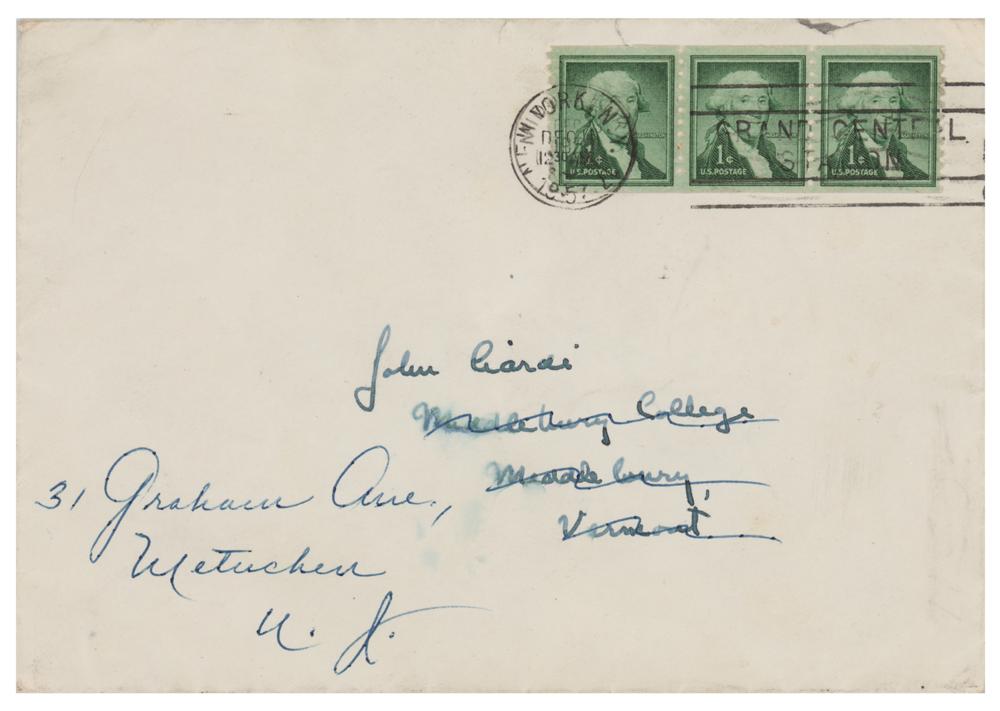 NEW YORK, N.Y.
DEC
1230
1957
GRAND CENTRAL
STATION
1¢
U.S. POSTAGE
1¢
U.S. POSTAGE
1¢
U.S. POSTAGE
John Ciardi
Middlebury College
Middlebury,
Vermont
31 Graham Ave.,
Metuchen
N. J.